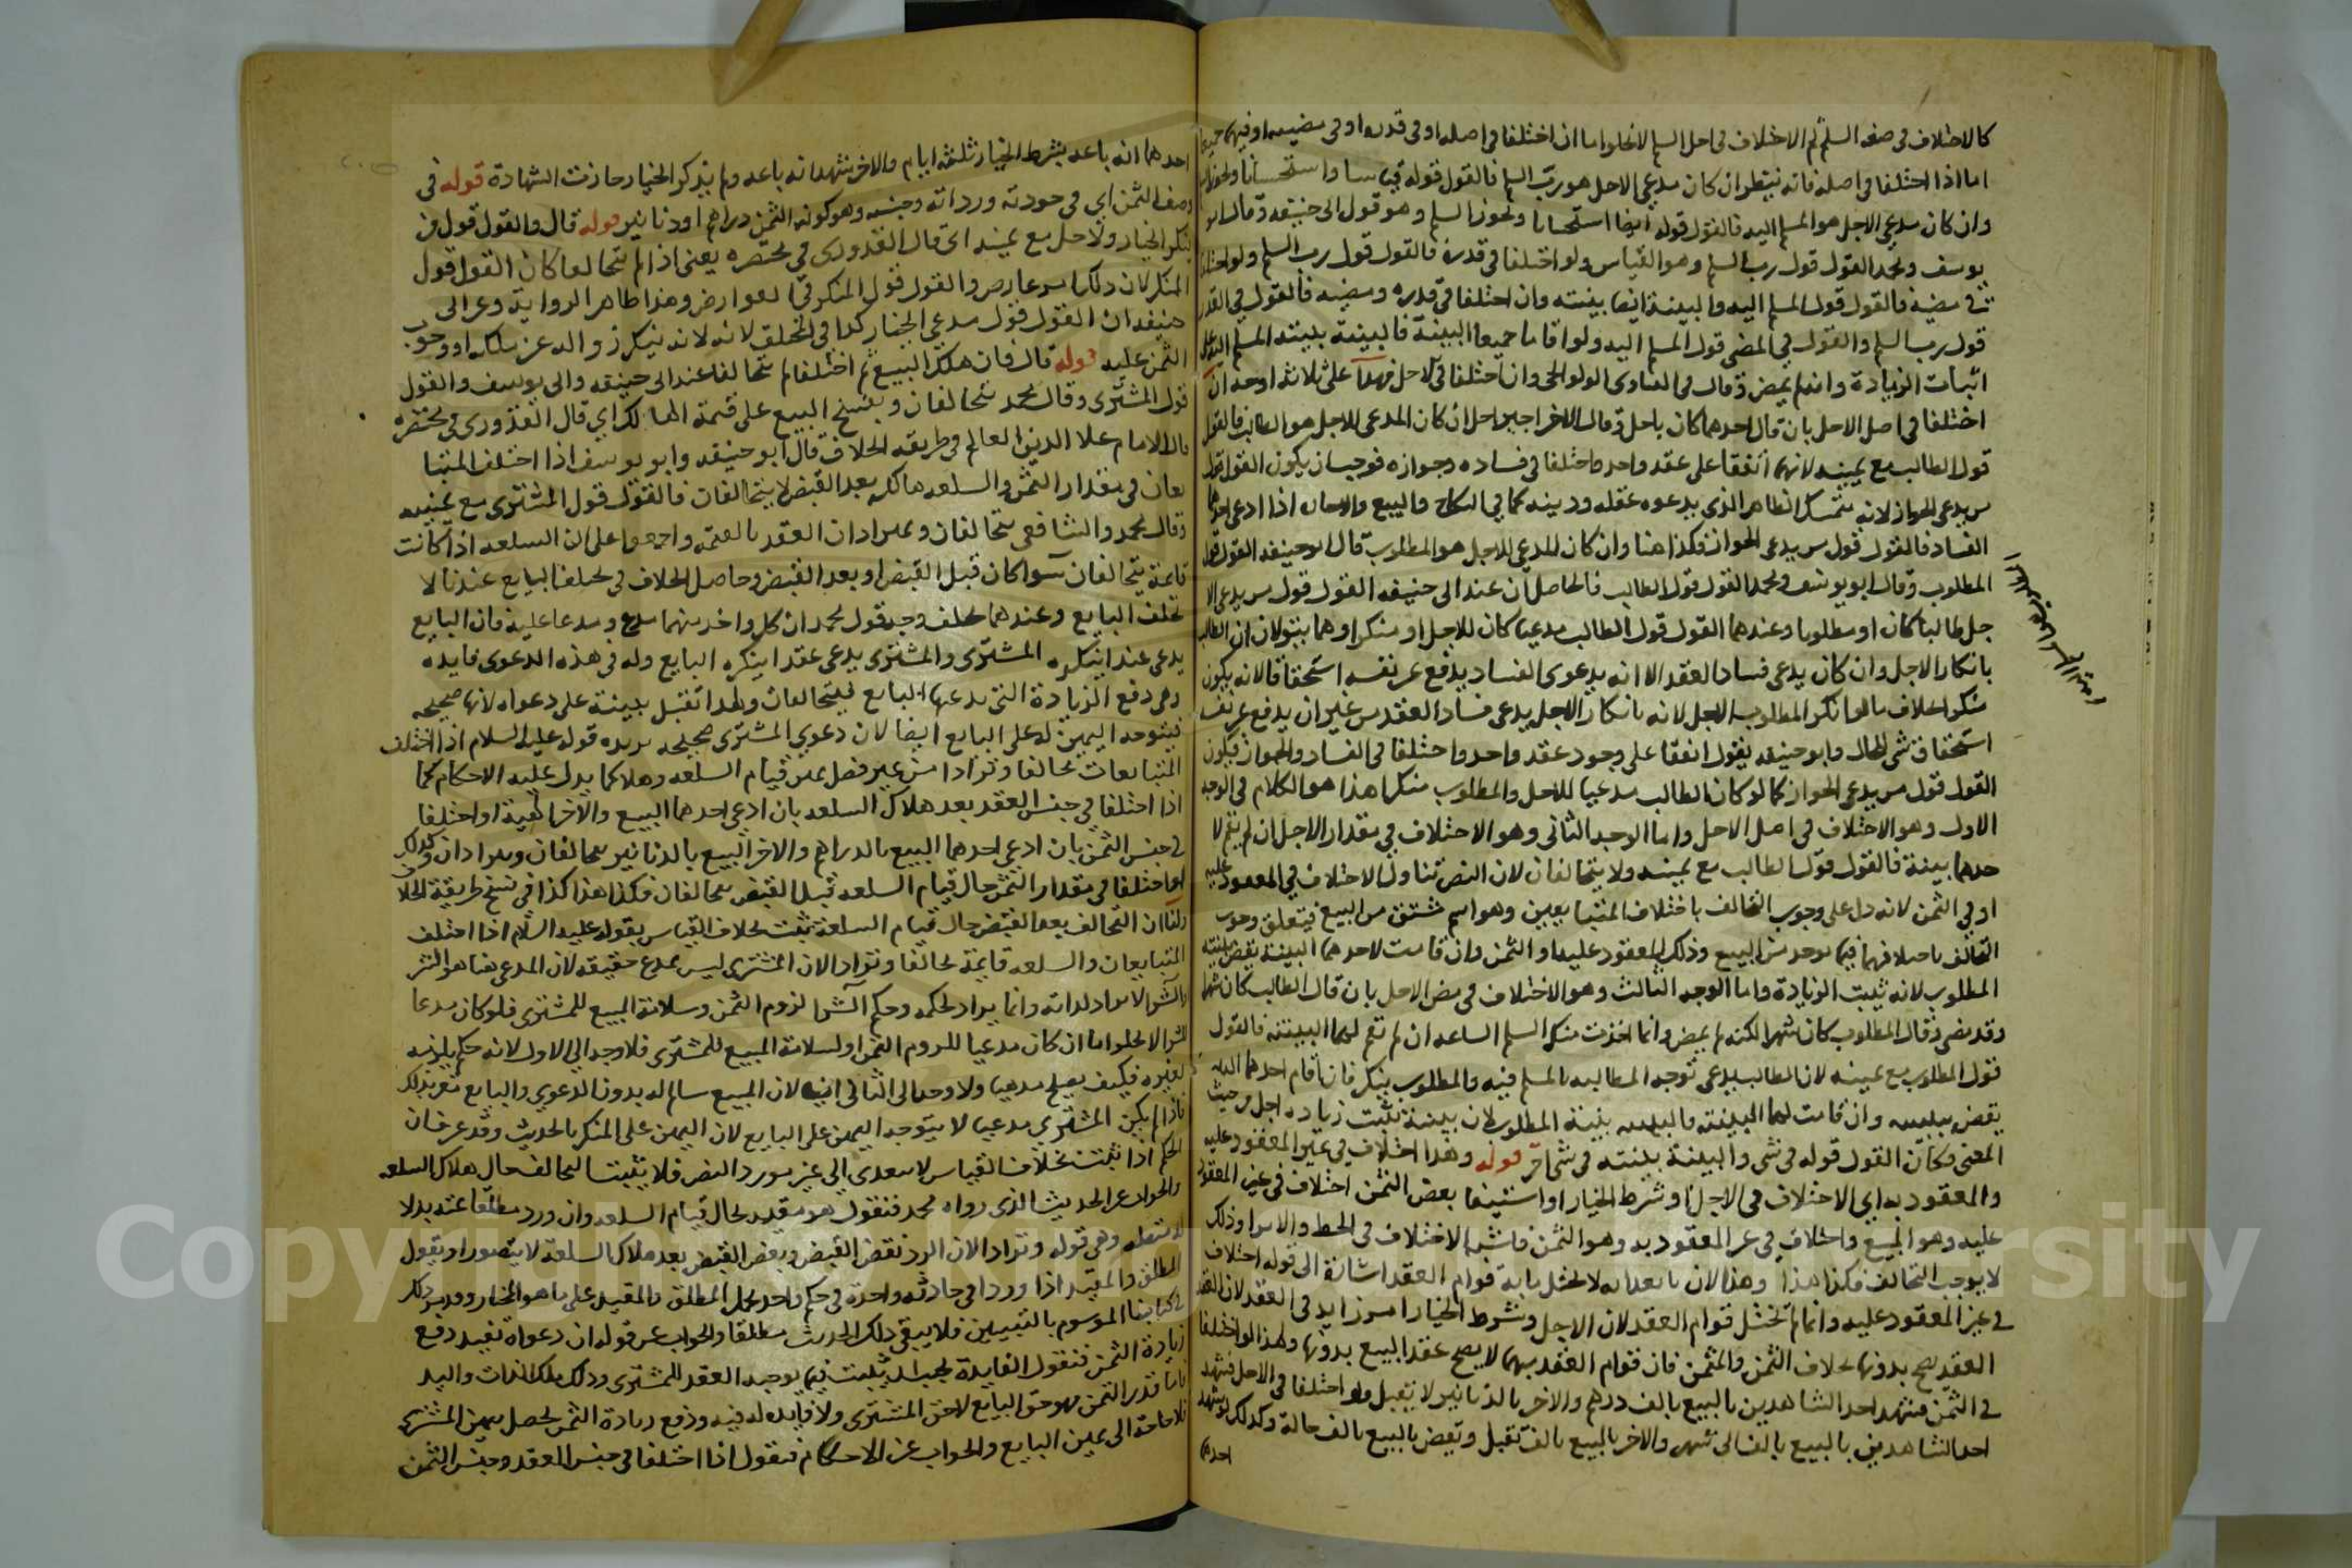 كالاختلاف في صفة السلم ثم الاختلاف في اجل السلم لا يخلوا اما ان اختلفا في اصله او في قدره او في مضيه او فيهما جميعا
اما اذا اختلفا في اصله فانه ينظر ان كان مدعي الاجل هو رب السلم فالقول قوله قياسا واستحسانا ويجوز السلم
وان كان مدعي الاجل هو المسلم اليه فالقول قوله ايضا استحسانا ويجوز السلم وهو قول ابي حنيفه وقال ابو
يوسف ومحمد القول قول رب السلم وهو القياس ولو اختلفا في قدره فالقول قول رب السلم ولو اختلفا
في مضيه فالقول قول المسلم اليه والبينة ايضا بينته وان اختلفا في قدره ومضيه فالقول في القدر
قول رب السلم والقول في المضي قول المسلم اليه ولو اقاما جميعا البينة فالبينة بينة المسلم اليه
اثبات الزيادة وانه لم يمض وقال في الفتاوى الولوالجي وان اختلفا في الاجل فهذا على ثلاثة اوجه ان
اختلفا في اصل الاجل بان قال احدهما كان باجل وقال الاخر بغير اجل ان كان المدعي للاجل هو الطالب فالقول
قول الطالب مع يمينه لانهما اتفقا على عقد واحد واختلفا في فساده وجوازه فوجب ان يكون القول قول
من يدعي الجواز لانه يتمسك الظاهر الذي يدعوه عقله ودينه كما في النكاح والبيع والاجارة اذا ادعى احدهما
الفساد فالقول قول من يدعي الجواز فكذا هنا وان كان المدعي للاجل هو المطلوب قال ابو حنيفه القول قول
المطلوب وقال ابو يوسف ومحمد القول قول الطالب فالحاصل ان عند ابي حنيفه القول قول من يدعي الا
جل طالبا كان او مطلوبا وعندهما القول قول الطالب مدعيا كان للاجل او منكرا وهما يقولان ان الطالب
بانكار الاجل وان كان يدعي فساد العقد الا انه بدعوى الفساد يدفع عن نفسه استحقاقا لانه يكون
منكرا بخلاف ما لو انكر المطلوب الاجل لانه بانكار الاجل يدعي فساد العقد من غير ان يدفع عن نفسه
استحقاق شي للحال وابو حنيفه يقول اتفقا على وجود عقد واحد واختلفا في الفساد والجواز فيكون
القول قول من يدعي الجواز كما لو كان الطالب مدعيا للاجل والمطلوب منكرا هذا هو الكلام في الوجه
الاول وهو الاختلاف في اصل الاجل واما الوجه الثاني وهو الاختلاف في مقدار الاجل ان لم يقم لا
حدهما بينة فالقول قول الطالب مع يمينه ولا يتحالفان لان النص تناول الاختلاف في المعقود عليه
او في الثمن لانه دل على وجوب التحالف باختلاف المتبايعين وهو اسم مشتق من البيع فيتعلق وجوب
التحالف باختلافهما فيما يوجد من البيع وذلك المعقود عليه او الثمن وان قامت لاحدهما البينة يقضى ببينته
المطلوب لانه يثبت الزيادة واما الوجه الثالث وهو الاختلاف في مضي الاجل بان قال الطالب كان شهرا
وقد مضى وقال المطلوب كان شهرا لكنه لم يمض وانما اخذت منك السلم الساعه ان لم تقم لهما البينة فالقول
قول المطلوب مع يمينه لان الطالب يدعي توجه المطالبه بالمسلم فيه والمطلوب ينكر فان اقام احدهما البينة
يقضى ببينته وان قامت لهما البينة فالبينة بينة المطلوب لان بينته تثبت زيادة اجل من حيث
المعنى فكان القول قوله في شي والبينة بينته في شي اخر قوله وهذا اختلاف في غير المعقود عليه
والمعقود به اي الاختلاف في الاجل او شرط الخيار او استيفا بعض الثمن اختلاف في غير المعقود
عليه وهو المبيع واختلاف في غير المعقود به وهو الثمن فاشبه الاختلاف في الحط والابرا وذلك
لا يوجب التحالف فكذا هذا وهذا لان بانعدامه لا يختل ما به قوام العقد اشارة الى قوله اختلاف
في غير المعقود عليه وانما لم تختل قوام العقد لان الاجل وشرط الخيار امر زايد في العقد لان العقد
العقد يصح بدونها بخلاف الثمن والمثمن فان قوام العقد بهما لا يصح عقد البيع بدونهما ولهذا لو اختلفا
في الثمن فشهد احد الشاهدين بالبيع بالف درهم والاخر بالدنانير لا يقبل ولو اختلفا في الاجل فشهد
احد الشاهدين بالبيع بالف الى شهر والاخر بالبيع بالف تقبل ويقضى بالبيع بالف حالة وكذلك لو شهد
احدهما
احدهما انه باعه بشرط الخيار ثلثة ايام والاخر شهد انه باعه ولم يذكر الخيار جازت الشهادة قوله في
وصف الثمن اي في جودته ورداته وجنسه وهو كونه الثمن دراهم او دنانير قوله قال والقول قول من
ينكر الخيار والاجل مع يمينه اي قال القدوري في مختصره يعني اذا لم يتحالفا كان القول قول
المنكر لان ذلك امر عارض والقول قول المنكر في العوارض وهذا ظاهر الرواية وعن ابي
حنيفه ان القول قول مدعي الخيار كذا في المختلف لانه لانه ينكر زواله عن ملكه او وجوب
الثمن عليه قوله قال فان هلك المبيع ثم اختلفا لم يتحالفا عند ابي حنيفه وابي يوسف والقول
قول المشتري وقال محمد يتحالفان ويفسخ البيع على قيمة الهالك اي قال القدوري في مختصره
قال الامام علا الدين العالم في طريقة الخلاف قال ابو حنيفه وابو يوسف اذا اختلف المتبا
يعان في مقدار الثمن والسلعه هالكه بعد القبض لا يتحالفان فالقول قول المشتري مع يمينه
وقال محمد والشافعي يتحالفان ويترادان العقد بالقيمه واجمعوا على ان السلعه اذا كانت
قايمة يتحالفان سوا كان قبل القبض او بعد القبض وحاصل الخلاف في تحليف البايع عندنا لا
يحلف البايع وعندهما يحلف وجه قول محمد ان كل واحد منهما مدع ومدعا عليه فان البايع
يدعي عقدا ينكره المشتري والمشتري يدعي عقدا ينكره البايع وله في هذه الدعوى فايده
وهي دفع الزيادة التي يدعيها البايع فيتحالفان ولهذا تقبل بينة على دعواه لانها صحيحه
فيتوجه اليمين له على البايع ايضا لان دعوى المشتري صحيحه يريده قوله عليه السلام اذا اختلف
المتبايعان تحالفا وترادا من غير فصل بين قيام السلعه وهلاكها يدل عليه الاحكام كما
اذا اختلفا في جنس العقد بعد هلاك السلعه بان ادعى احدهما البيع والاخر الهبة او اختلفا
في جنس الثمن بان ادعى احدهما البيع بالدراهم والاخر البيع بالدنانير يتحالفان ويترادان وكذلك
لو اختلفا في مقدار الثمن حال قيام السلعه قبل القبض يتحالفان فكذا هذا كذا في نسخ طريقة الخلا
ولنا ان التحالف بعد القبض حال قيام السلعة ثبت بخلاف القياس بقوله عليه السلام اذا اختلف
المتبايعان والسلعه قايمة تحالفا وترادا لان المشتري ليس بمدع حقيقه لان المدعى هنا هو الشر
والشرا لا يراد لذاته وانما يراد لحكمه وحكم الشرا لزوم الثمن وسلامة المبيع للمشتري فلو كان مدعيا
للشرا لا يخلوا اما ان كان مدعيا للزوم الثمن او لسلامة المبيع للمشتري فلا وجه الي الاول لانه حكم يلزمه
لغيره فكيف يصلح مدعيا ولا وجه الى الثاني ايضا لان المبيع سالم له بدون الدعوى والبايع مقر بذلك
فاذا لم يكن المشتري مدعيا لا يتوجه اليمين على البايع لان اليمين على المنكر بالحديث وقد عرف ان
الحكم اذا ثبت بخلاف القياس لا يتعدى الي غير مورد النص فلا يثبت التحالف حال هلاك السلعه
والجواب عن الحديث الذي رواه محمد فنقول هو مقيد بحال قيام السلعه وان ورد مطلقا عنه بدلا
وهي قوله وترادا لان الرد نقض القبض ونقض القبض بعد هلاك السلعة لا يتصور او نقول
المطلق والمقيد اذا وردا في حادثه واحدة في حكم واحد يحمل المطلق على المقيد على ما هو المختار وقد مر ذلك
في كتابنا الموسوم بالتبيين فلا يبقى ذلك الحديث مطلقا والجواب عن قوله ان دعواه تفيد دفع
زيادة الثمن فنقول الفايدة يجب ان يثبت فيما يوجبه العقد للمشتري وذلك ملك الذات واليد
فاما قدر الثمن فهو حق البايع لا حق المشتري ولا فايده له فيه ودفع زيادة الثمن يحصل بيمين المشتري
فلا حاجة الى يمين البايع والجواب عن الاحكام فنقول اذا اختلفا في جنس العقد وجنس الثمن